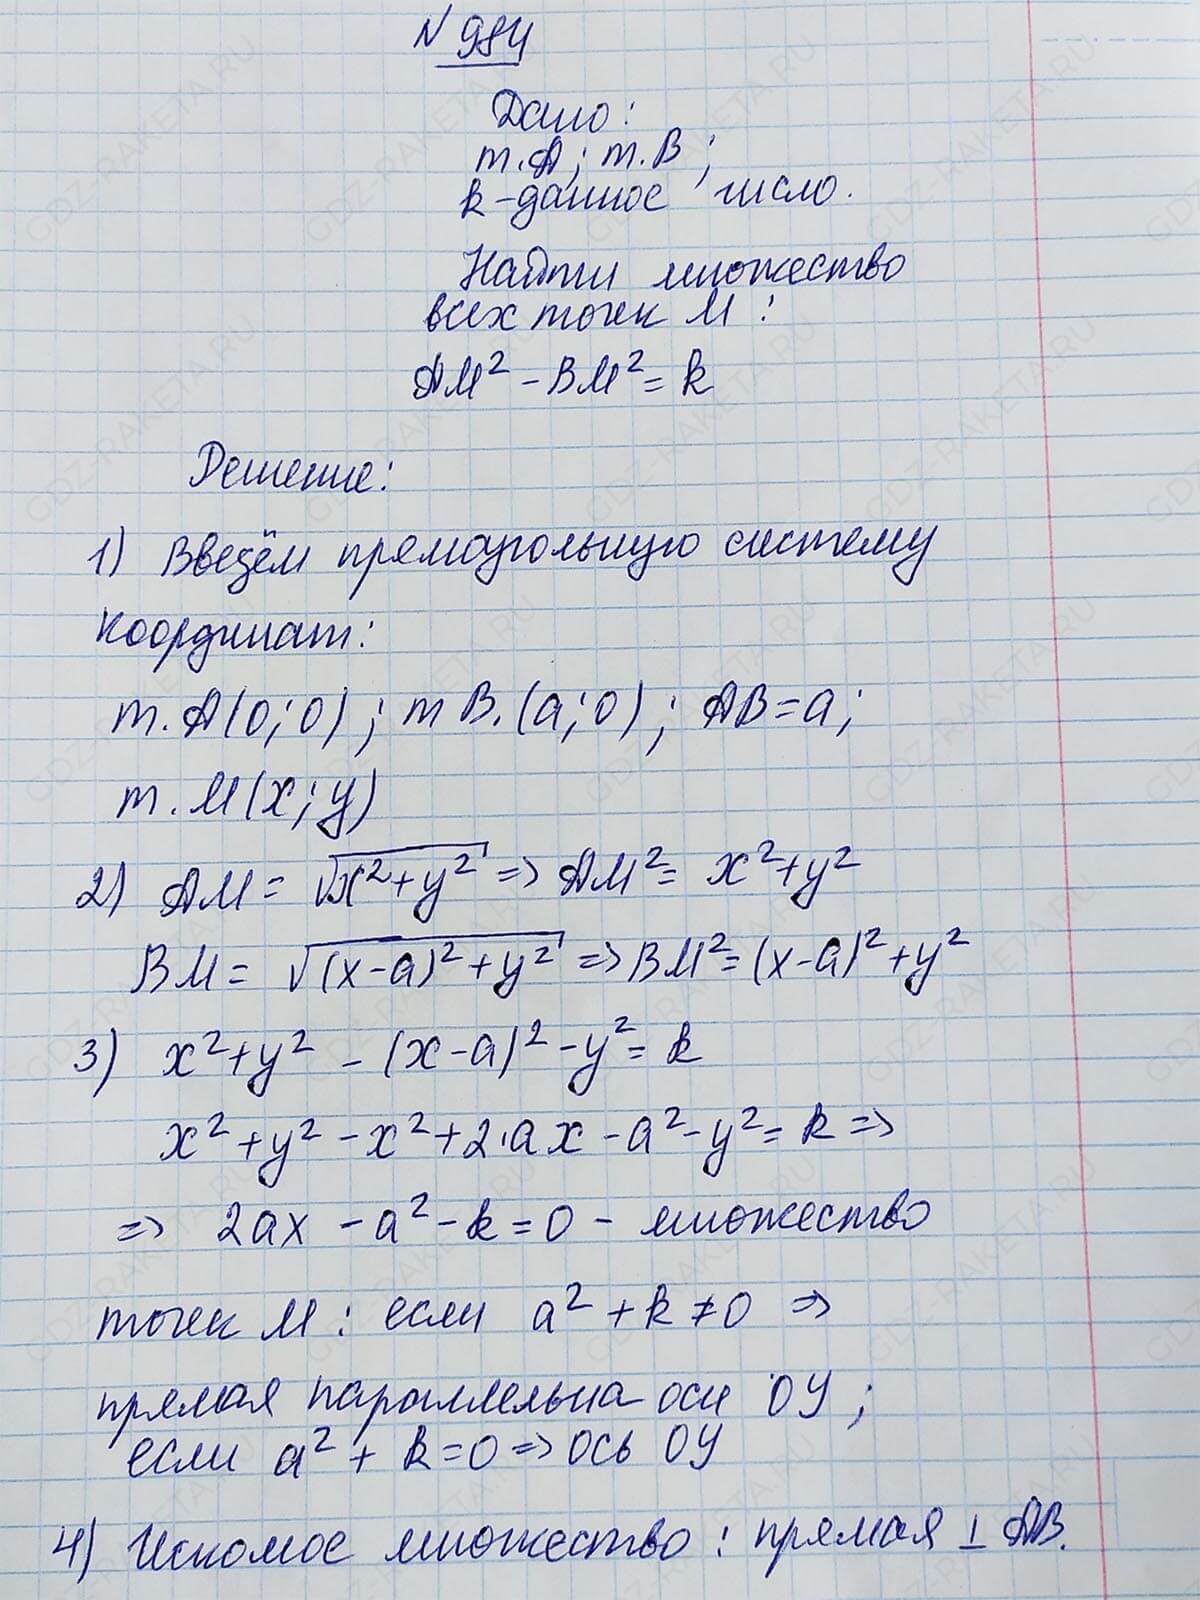 N 984
Дано:
т.A; т.B;
k-данное число.
Найти множество
всех точек M:
AM² - BM² = k
Решение:
1) Введём прямоугольную систему
координат:
т.A(0;0); т B.(a;0); AB=a;
т.M(x;y)
2) AM = √(x²+y²) => AM² = x²+y²
BM = √((x-a)²+y²) => BM² = (x-a)²+y²
3) x²+y² - (x-a)² - y² = k
x²+y² - x² + 2·ax - a² - y² = k =>
=> 2ax - a² - k = 0 - множество
точек M: если a² + k ≠ 0 =>
прямая параллельна оси OY;
если a² + k = 0 => ось OY
4) Искомое множество: прямая ⊥ AB.
GDZ-RAKETA.RU